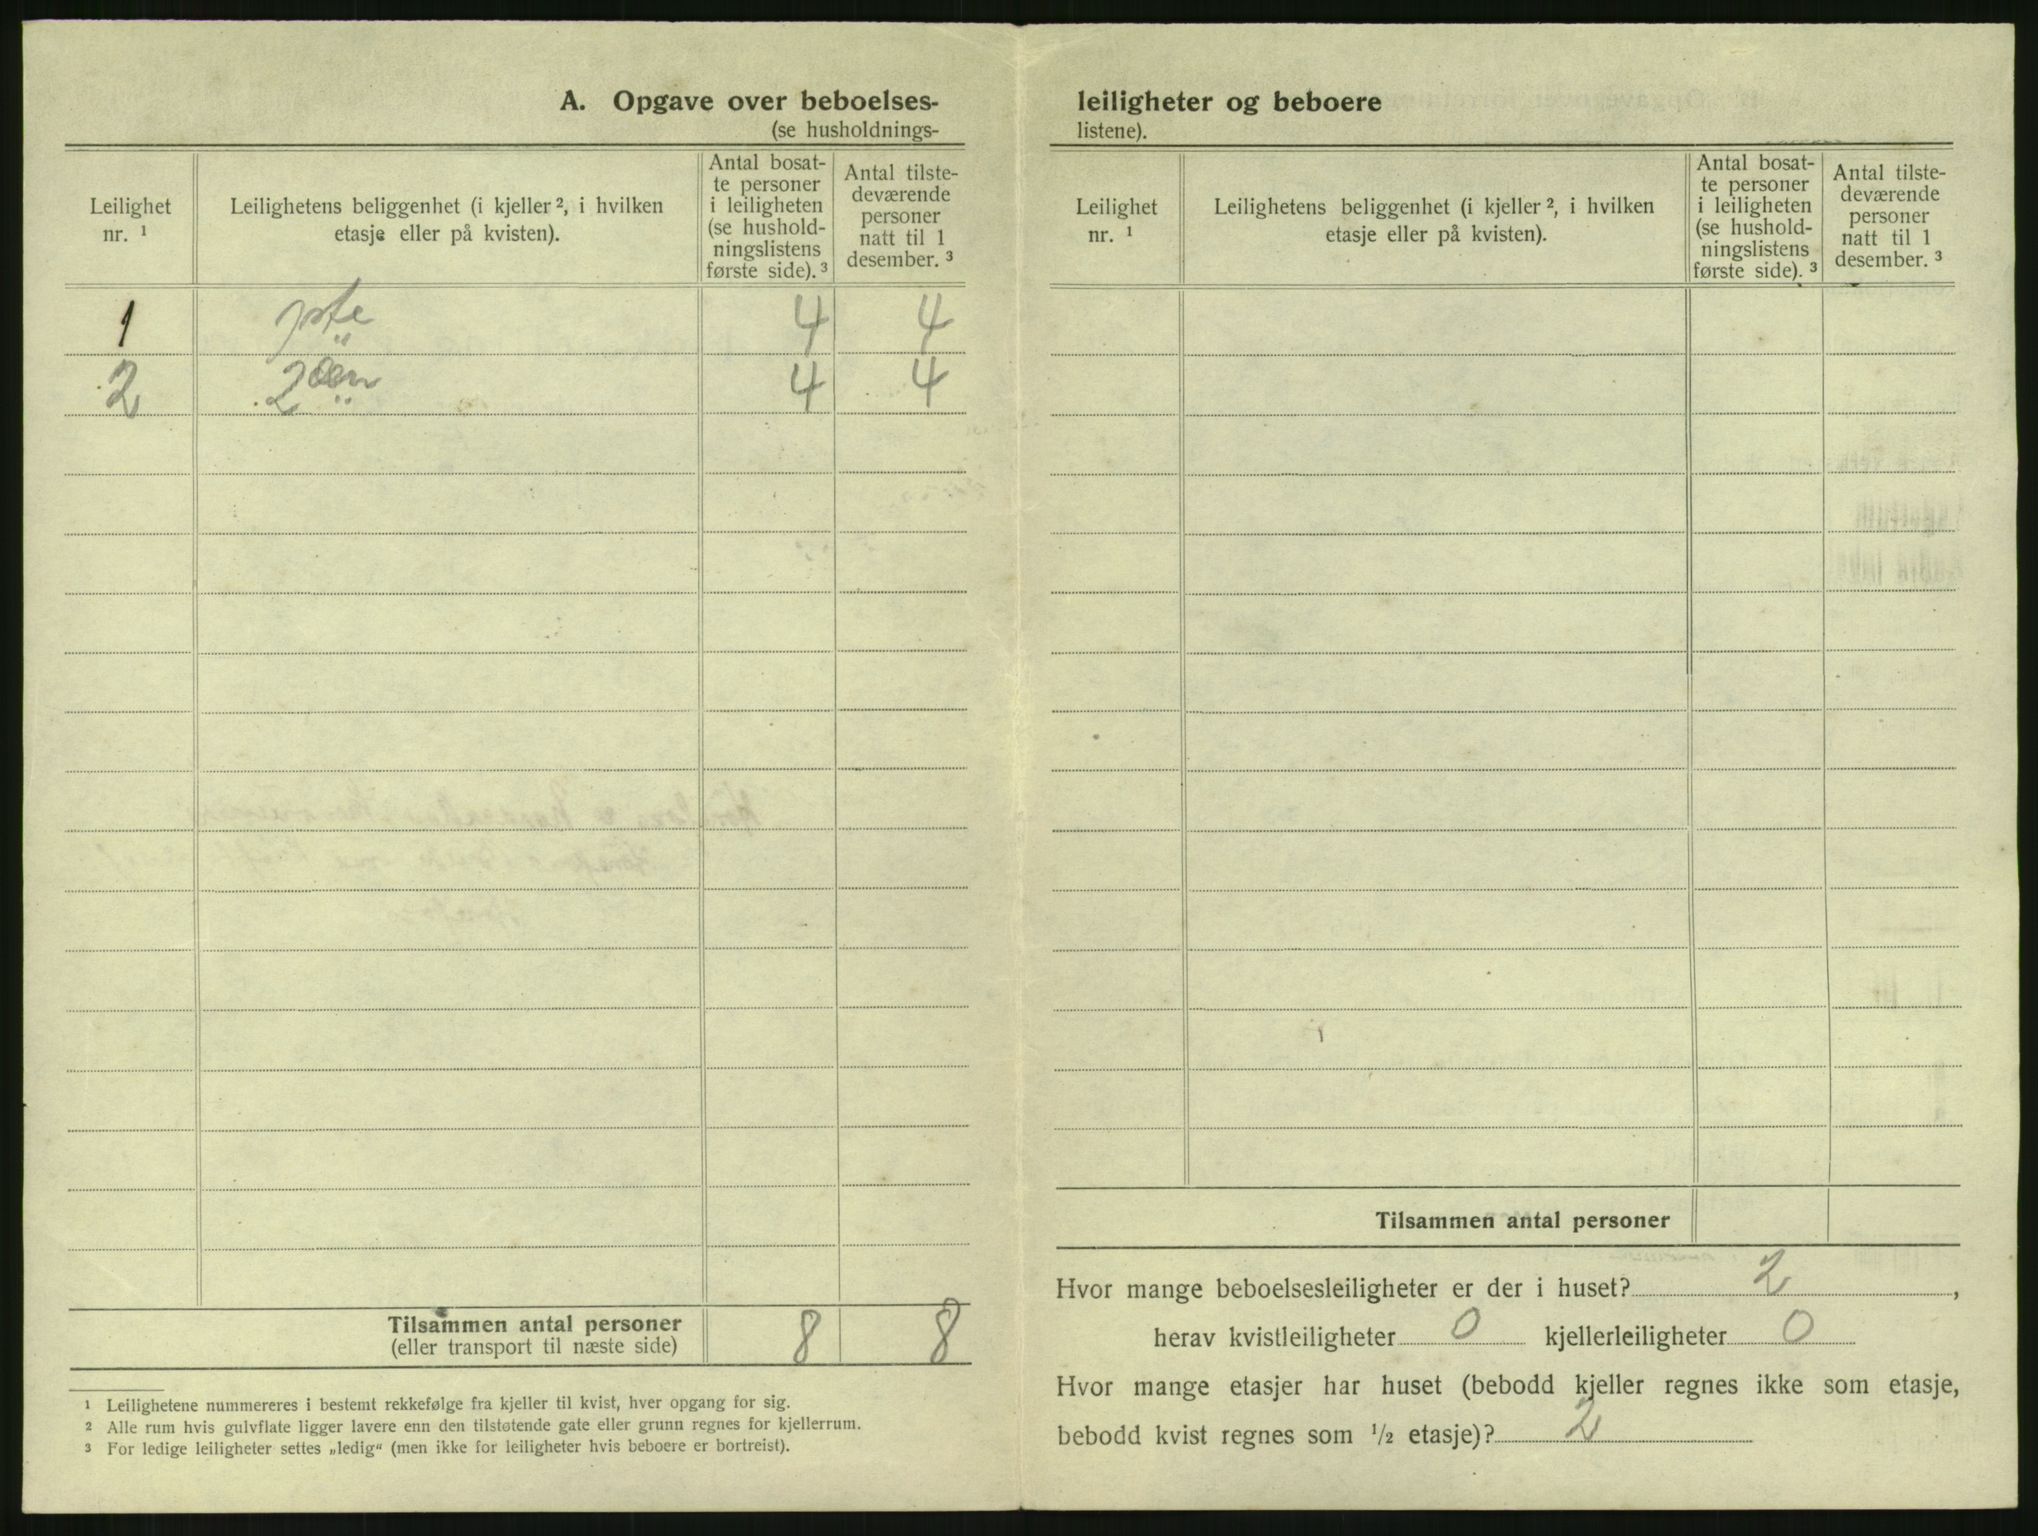 A. Opgave over beboelses-
(se husholdnings-
Leilighet nr. ¹
Leilighetens beliggenhet (i kjeller ², i hvilken etasje eller på kvisten).
Antal bosat-
te personer
i leiligheten
(se hushold-
ningslistens
første side). ³
Antal tilste-
deværende
personer
natt til 1
desember. ³
1 4 4
2 4 4
Tilsammen antal personer 8 8
(eller transport til næste side)
¹ Leilighetene nummereres i bestemt rekkefølge fra kjeller til kvist, hver opgang for sig.
² Alle rum hvis gulvflate ligger lavere enn den tilstøtende gate eller grunn regnes for kjellerrum.
³ For ledige leiligheter settes „ledig“ (men ikke for leiligheter hvis beboere er bortreist).
leiligheter og beboere
listene).
Leilighet nr. ¹
Leilighetens beliggenhet (i kjeller ², i hvilken etasje eller på kvisten).
Antal bosat-
te personer
i leiligheten
(se hushold-
ningslistens
første side). ³
Antal tilste-
deværende
personer
natt til 1
desember. ³
Tilsammen antal personer
Hvor mange beboelsesleiligheter er der i huset? 2,
herav kvistleiligheter 0 kjellerleiligheter 0
Hvor mange etasjer har huset (bebodd kjeller regnes ikke som etasje,
bebodd kvist regnes som ½ etasje)? 2